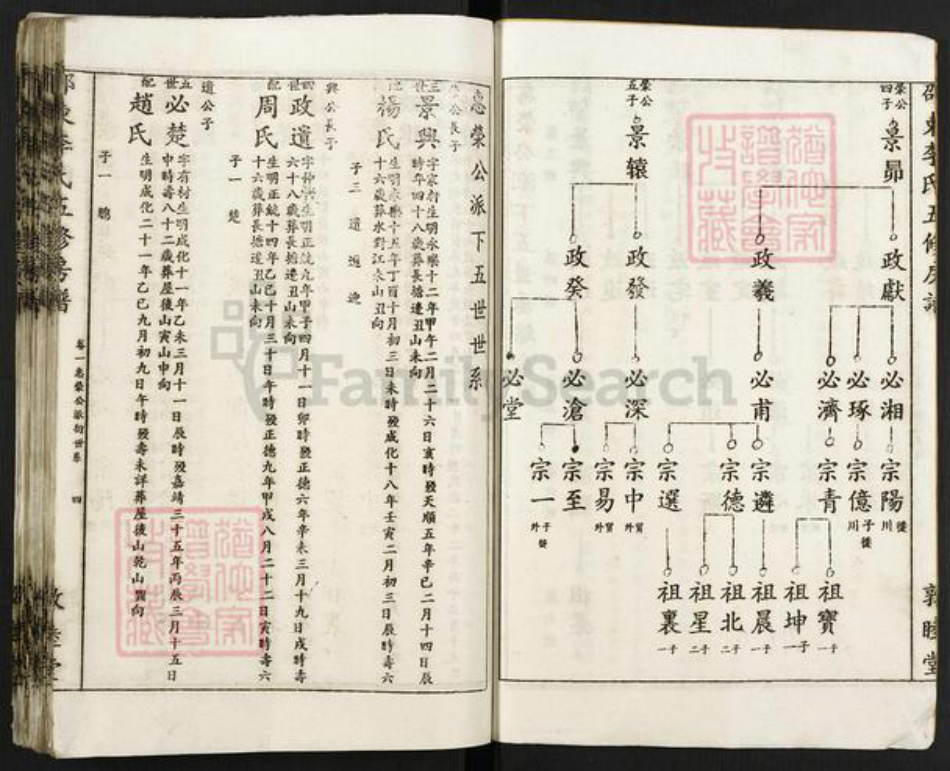 邵東李氏五修房譜
敦睦堂
榮公四子
景昴
政獻
政義
必湘
必琢
必濟
必甫
宗陽 徙川
宗億 子徙川
宗青
宗遴
宗德
宗選
祖寶 子一
祖坤 子一
祖晨 子一
祖北 子二
祖星 子二
祖裏 子一
榮公五子
景轅
政發
政癸
必深
必滄
必堂
宗中 貿外
宗易 貿外
宗至
宗一 子徙外
惠榮公派下五世世系
榮公長子
三世
景興
字家衍生明永樂十二年甲午二月二十六日亥時歿天順五年辛巳二月十四日辰
時年四十八歲葬長塘邊丑山未向
配
楊氏
生明永樂十五年丁酉十月初三日未時歿成化十八年壬寅二月初三日辰時壽六
十六歲葬水對江未山丑向
子三 遺 逈 逸
興公長子
四世
政遺
生明正統九年甲子四月十一日卯時歿正德六年辛未三月十九日戌時壽
六十八歲葬長塘邊丑山未向
配
周氏
生明正統十四年乙巳十月三十日午時歿正德九年甲戌八月二十二日寅時壽六
十六歲葬長塘邊丑山未向
子一 楚
遺公子
五世
必楚
字有材生明成化十一年乙未三月十一日辰時歿嘉靖三十五年丙辰三月十五日
申時壽八十二歲葬屋後山寅山申向
配
趙氏
生明成化二十一年乙巳九月初九日午時歿壽未詳葬屋後山乾山巽向
子一 聰
卷一惠榮公派衍世系
四
FamilySearch